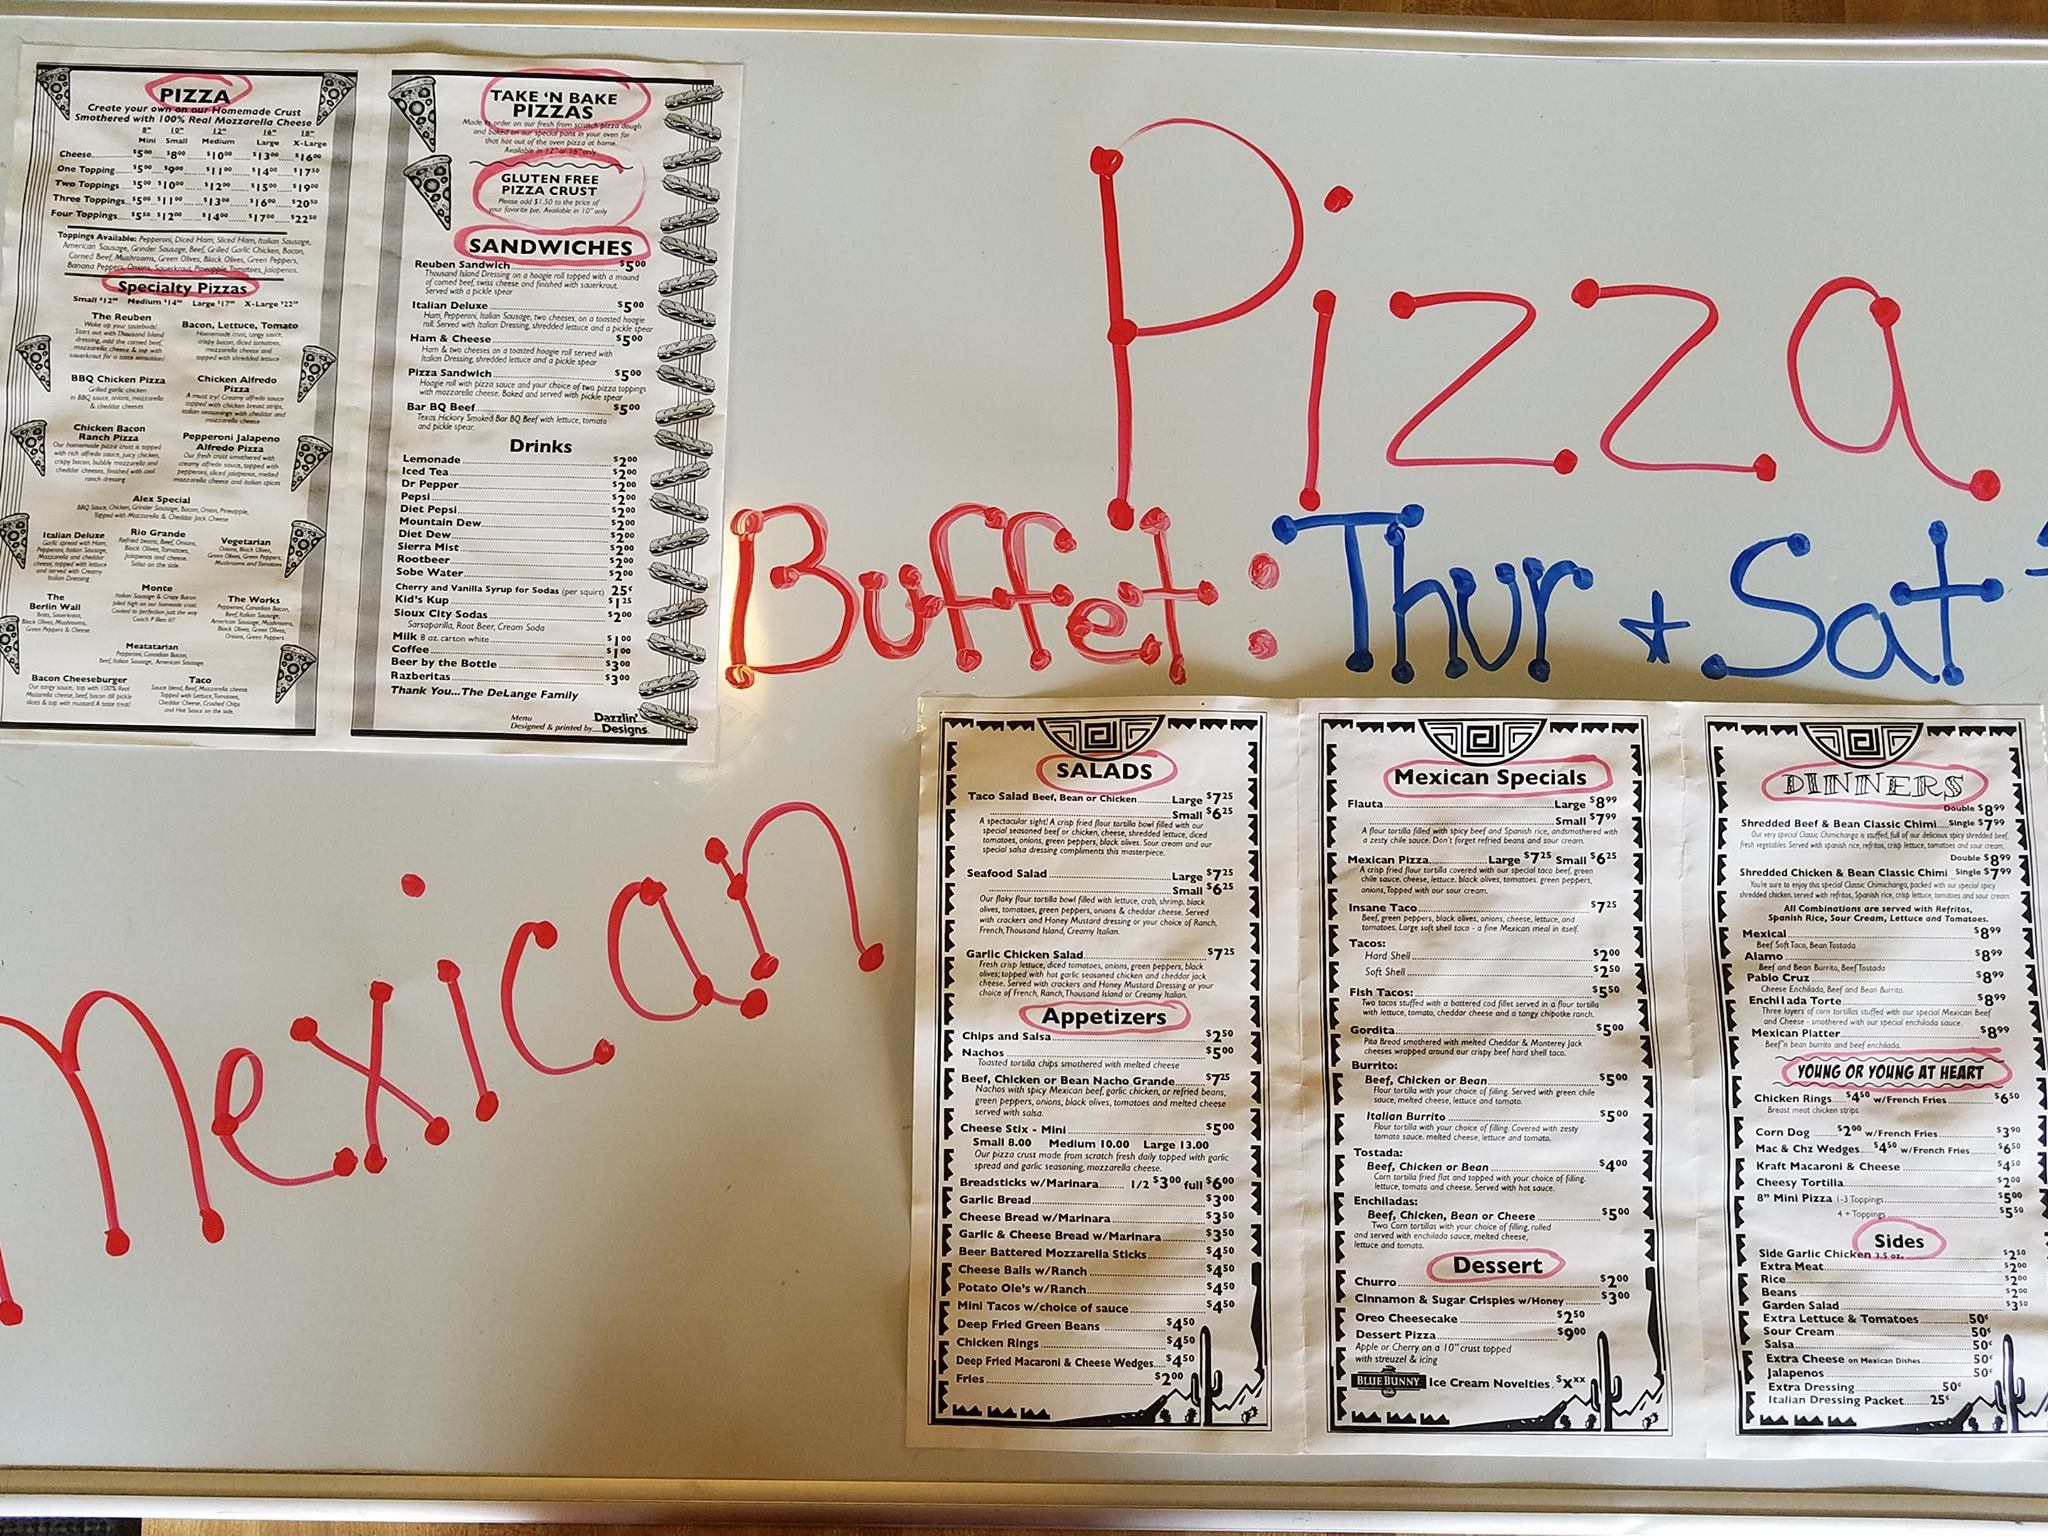 PIZZA
Create your own on our Homemade Crust
Smothered with 100% Real Mozzarella Cheese
8" 10" 12" 16" 18"
Mini Small Medium Large X-Large
Cheese $5.00 $8.00 $10.00 $13.00 $16.00
One Topping $5.00 $9.00 $11.00 $14.00 $17.50
Two Toppings $5.00 $10.00 $12.00 $15.00 $19.00
Three Toppings $5.00 $11.00 $13.00 $16.00 $20.50
Four Toppings $5.50 $12.00 $14.00 $17.00 $22.50
Toppings Available: Pepperoni, Diced Ham, Sliced Ham, Italian Sausage,
American Sausage, Grinder Sausage, Beef, Grilled Garlic Chicken, Bacon,
Corned Beef, Mushrooms, Green Olives, Black Olives, Green Peppers,
Banana Peppers, Onions, Sauerkraut, Pineapple, Tomatoes, Jalapenos.
Specialty Pizzas
Small $12.00 Medium $14.00 Large $17.00 X-Large $22.50
The Reuben
Wake up your tastebuds!
Start out with Thousand Island
dressing, add the corned beef,
mozzarella cheese & top with
sauerkraut for a taste sensation!
Bacon, Lettuce, Tomato
Homemade crust, tangy sauce,
crispy bacon, diced tomatoes,
mozzarella cheese and
topped with shredded lettuce
BBQ Chicken Pizza
Grilled garlic chicken
in BBQ sauce, onions, mozzarella
& cheddar cheeses
Chicken Alfredo
Pizza
A must try! Creamy alfredo sauce
topped with chicken breast strips,
italian seasonings with cheddar and
mozzarella cheese
Chicken Bacon
Ranch Pizza
Our homemade pizza crust is topped
with rich alfredo sauce, juicy chicken,
crispy bacon, bubbly mozzarella and
cheddar cheeses, finished with cool
ranch dressing
Pepperoni Jalapeno
Alfredo Pizza
Our fresh crust smothered with
creamy alfredo sauce, topped with
pepperoni, sliced jalapenos, melted
mozzarella cheese and italian spices
Alex Special
BBQ Sauce, Chicken, Grinder Sausage, Bacon, Onion, Pineapple,
Topped with Mozzarella & Cheddar Jack Cheese
Italian Deluxe
Garlic spread with Ham,
Pepperoni, Italian Sausage,
Mozzarella and cheddar
cheese, topped with lettuce
and served with Creamy
Italian Dressing
Rio Grande
Refried beans, Beef, Onions,
Black Olives, Tomatoes,
Jalapenos and cheese.
Salsa on the side.
Vegetarian
Onions, Black Olives,
Green Olives, Green Peppers,
Mushrooms and Tomatoes
The
Berlin Wall
Brats, Sauerkraut,
Black Olives, Mushrooms,
Green Peppers & Cheese.
Monte
Italian Sausage & Crispy Bacon
piled high on our homemade crust.
Cooked to perfection just the way
Coach P likes it!!
The Works
Pepperoni, Canadian Bacon,
Beef, Italian Sausage,
American Sausage, Mushrooms,
Black Olives, Green Olives,
Onions, Green Peppers
Meatatarian
Pepperoni, Canadian Bacon,
Beef, Italian Sausage, American Sausage
Bacon Cheeseburger
Our tangy sauce, top with 100% Real
Mozzarella cheese, beef, bacon dill pickle
slices & top with mustard. A taste treat!
Taco
Sauce blend, Beef, Mozzarella cheese.
Topped with Lettuce, Tomatoes,
Cheddar Cheese, Crushed Chips
and Hot Sauce on the side.
TAKE 'N BAKE
PIZZAS
Made to order on our fresh from scratch pizza dough
and baked on our special pans in your oven for
that hot out of the oven pizza at home.
Available in 12" or 16" only.
GLUTEN FREE
PIZZA CRUST
Please add $1.50 to the price of
your favorite pie. Available in 10" only
SANDWICHES
Reuben Sandwich $5.00
Thousand Island Dressing on a hoagie roll topped with a mound
of corned beef, swiss cheese and finished with sauerkraut.
Served with a pickle spear
Italian Deluxe $5.00
Ham, Pepperoni, Italian Sausage, two cheeses, on a toasted hoagie
roll. Served with Italian Dressing, shredded lettuce and a pickle spear
Ham & Cheese $5.00
Ham & two cheeses on a toasted hoagie roll served with
Italian Dressing, shredded lettuce and a pickle spear
Pizza Sandwich $5.00
Hoagie roll with pizza sauce and your choice of two pizza toppings
with mozzarella cheese. Baked and served with pickle spear
Bar BQ Beef $5.00
Texas Hickory Smoked Bar BQ Beef with lettuce, tomato
and pickle spear.
Drinks
Lemonade $2.00
Iced Tea $2.00
Dr Pepper $2.00
Pepsi $2.00
Diet Pepsi $2.00
Mountain Dew $2.00
Diet Dew $2.00
Sierra Mist $2.00
Rootbeer $2.00
Sobe Water $2.00
Cherry and Vanilla Syrup for Sodas (per squirt) 25¢
Kid's Kup $1.25
Sioux City Sodas $2.00
Sarsaparilla, Root Beer, Cream Soda
Milk 8 oz. carton white $1.00
Coffee $1.00
Beer by the Bottle $3.00
Razberitas $3.00
Thank You...The DeLange Family
Menu
Designed & printed by Dazzlin' Designs
Pizza
Buffet: Thur + Sat
Mexican
SALADS
Taco Salad Beef, Bean or Chicken Large $7.25
Small $6.25
A spectacular sight! A crisp fried flour tortilla bowl filled with our
special seasoned beef or chicken, cheese, shredded lettuce, diced
tomatoes, onions, green peppers, black olives. Sour cream and our
special salsa dressing compliments this masterpiece.
Seafood Salad Large $7.25
Small $6.25
Our flaky flour tortilla bowl filled with lettuce, crab, shrimp, black
olives, tomatoes, green peppers, onions & cheddar cheese. Served
with crackers and Honey Mustard dressing or your choice of Ranch,
French, Thousand Island, Creamy Italian.
Garlic Chicken Salad $7.25
Fresh crisp lettuce, diced tomatoes, onions, green peppers, black
olives; topped with hot garlic seasoned chicken and cheddar jack
cheese. Served with crackers and Honey Mustard Dressing or your
choice of French, Ranch, Thousand Island or Creamy Italian.
Appetizers
Chips and Salsa $2.50
Nachos $5.00
Toasted tortilla chips smothered with melted cheese
Beef, Chicken or Bean Nacho Grande $7.25
Nachos with spicy Mexican beef, garlic chicken, or refried beans,
green peppers, onions, black olives, tomatoes and melted cheese
served with salsa.
Cheese Stix - Mini $5.00
Small 8.00 Medium 10.00 Large 13.00
Our pizza crust made from scratch fresh daily topped with garlic
spread and garlic seasoning, mozzarella cheese.
Breadsticks w/Marinara 1/2 $3.00 full $6.00
Garlic Bread $3.00
Cheese Bread w/Marinara $3.50
Garlic & Cheese Bread w/Marinara $3.50
Beer Battered Mozzarella Sticks $4.50
Cheese Balls w/Ranch $4.50
Potato Ole's w/Ranch $4.50
Mini Tacos w/choice of sauce $4.50
Deep Fried Green Beans $4.50
Chicken Rings $4.50
Deep Fried Macaroni & Cheese Wedges $4.50
Fries $2.00
Mexican Specials
Flauta Large $8.99
Small $7.99
A flour tortilla filled with spicy beef and Spanish rice, andsmothered with
a zesty chile sauce. Don't forget refried beans and sour cream.
Mexican Pizza Large $7.25 Small $6.25
A crisp fried flour tortilla covered with our special taco beef, green
chile sauce, cheese, lettuce, black olives, tomatoes, green peppers,
onions, Topped with our sour cream.
Insane Taco $7.25
Beef, green peppers, black olives, onions, cheese, lettuce, and
tomatoes. Large soft shell taco - a fine Mexican meal in itself.
Tacos:
Hard Shell $2.00
Soft Shell $2.50
Fish Tacos: $5.50
Two tacos stuffed with a battered cod fillet served in a flour tortilla
with lettuce, tomato, cheddar cheese and a tangy chipotke ranch.
Gordita $5.00
Pita Bread smothered with melted Cheddar & Monterey Jack
cheeses wrapped around our crispy beef hard shell taco.
Burrito:
Beef, Chicken or Bean $5.00
Flour tortilla with your choice of filling. Served with green chile
sauce, melted cheese, lettuce and tomato.
Italian Burrito $5.00
Flour tortilla with your choice of filling. Covered with zesty
tomato sauce, melted cheese, lettuce and tomato.
Tostada:
Beef, Chicken or Bean $4.00
Corn tortilla fried flat and topped with your choice of filling.
lettuce, tomato and cheese. Served with hot sauce.
Enchiladas:
Beef, Chicken, Bean or Cheese $5.00
Two Corn tortillas with your choice of filling, rolled
and served with enchilada sauce, melted cheese,
lettuce and tomato.
Dessert
Churro $2.00
Cinnamon & Sugar Crispies w/Honey $3.00
Oreo Cheesecake $2.50
Dessert Pizza $9.00
Apple or Cherry on a 10" crust topped
with streuzel & icing
BLUE BUNNY Ice Cream Novelties. $x.xx
DINNERS
Double $8.99
Shredded Beef & Bean Classic Chimi Single $7.99
Our very special Classic Chimichanga is stuffed, full of our delicious spicy shredded beef,
fresh vegetables. Served with spanish rice, refritos, crisp lettuce, tomatoes and sour cream.
Double $8.99
Shredded Chicken & Bean Classic Chimi Single $7.99
You're sure to enjoy this special Classic Chimichanga, packed with our special spicy
shredded chicken. served with refritos, Spanish rice, crisp lettuce, tomatoes and sour cream.
All Combinations are served with Refritos,
Spanish Rice, Sour Cream, Lettuce and Tomatoes.
Mexical $8.99
Beef Soft Taco, Bean Tostada
Alamo $8.99
Beef and Bean Burrito, Beef Tostada
Pablo Cruz $8.99
Cheese Enchilada, Beef and Bean Burrito.
Enchilada Torte $8.99
Three layers of corn tortillas stuffed with our special Mexican Beef
and Cheese - smothered with our special enchilada sauce.
Mexican Platter $8.99
Beef'n bean burrito and beef enchilada.
YOUNG OR YOUNG AT HEART
Chicken Rings $4.50 w/French Fries $6.50
Breast meat chicken strips
Corn Dog $2.00 w/French Fries $3.90
Mac & Chz Wedges $4.50 w/French Fries $6.50
Kraft Macaroni & Cheese $4.50
Cheesy Tortilla $2.00
8" Mini Pizza 1-3 Toppings $5.00
4 + Toppings $5.50
Sides
Side Garlic Chicken 3.5 oz. $2.50
Extra Meat $2.00
Rice $2.00
Beans $2.00
Garden Salad $3.50
Extra Lettuce & Tomatoes 50¢
Sour Cream 50¢
Salsa 50¢
Extra Cheese on Mexican Dishes 50¢
Jalapenos 50¢
Extra Dressing 50¢
Italian Dressing Packet 25¢